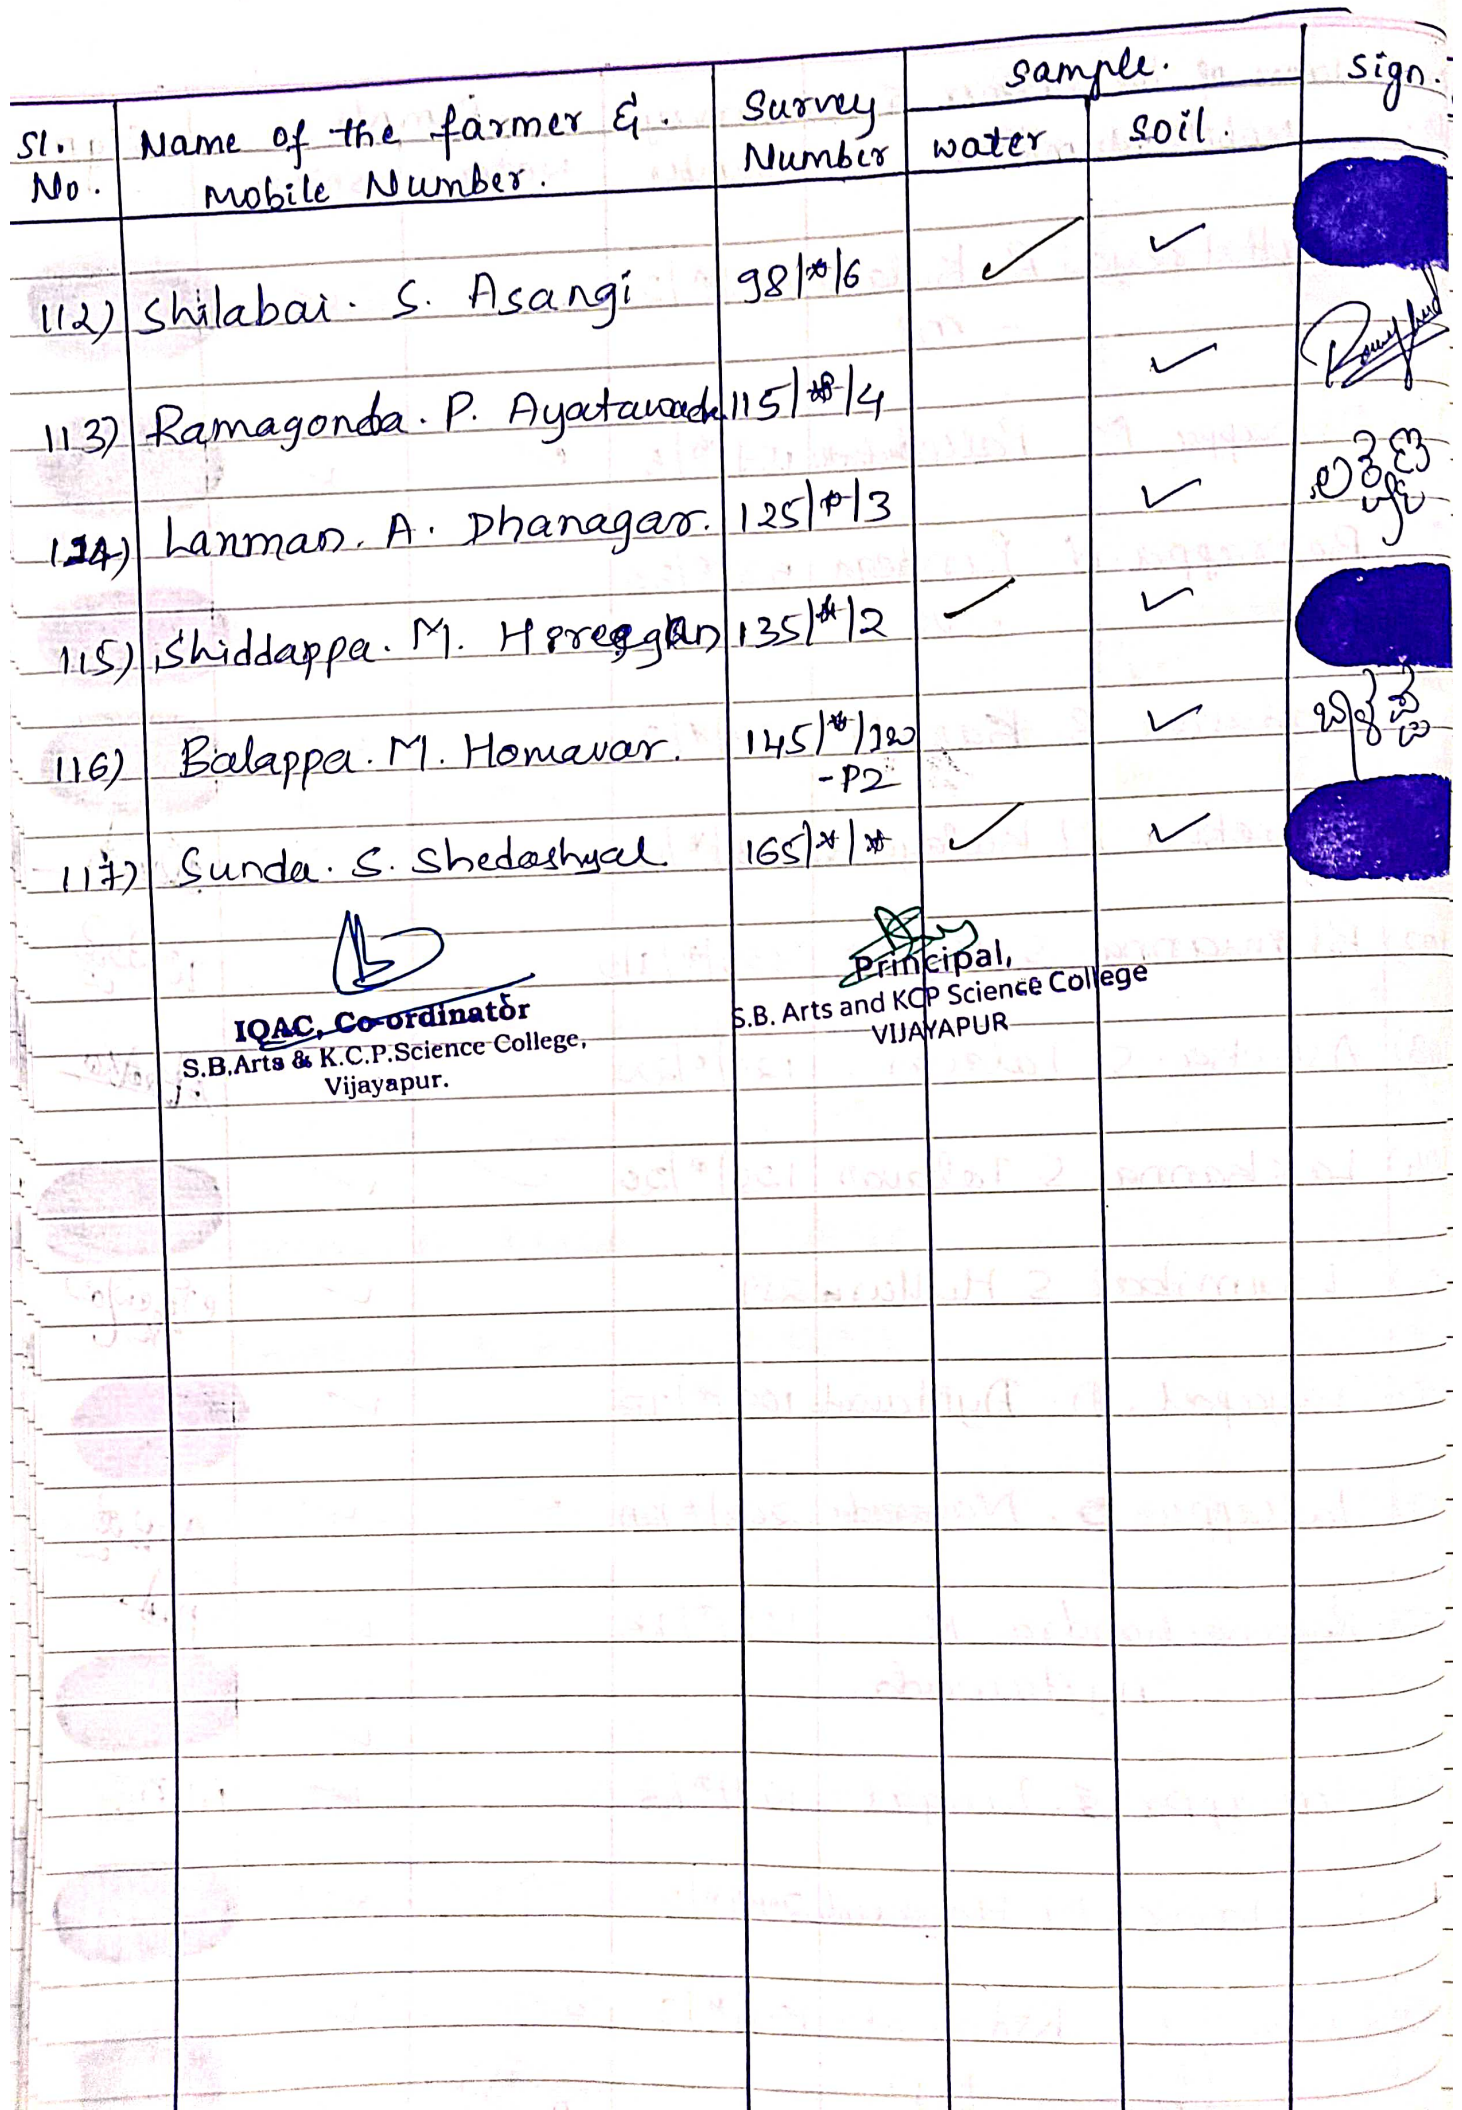 Sl. No. Name of the farmer & mobile Number. Survey Number sample. water soil. sign.
112) Shilabai. S. Asangi 98/*/6 ✓ ✓
113) Ramagonda. P. Ayatawad 115/*/4 ✓
114) Lanman. A. Dhanagar. 125/*/3 ✓
115) Shiddappa. M. 135/*/2 ✓ ✓
116) Balappa. M. Homavar. 145/*/ ✓
-P2
117) Sunda. S. Shedashyal 165/*/* ✓ ✓
IQAC, Co-ordinator
S.B.Arts & K.C.P.Science College,
Vijayapur.
Principal,
S.B. Arts and KCP Science College
VIJAYAPUR